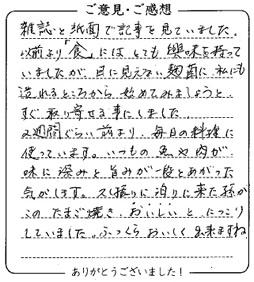 ご意見・ご感想
雑誌と紙面で記事を見ていました。
以前より「食」にはとても興味を持って
いましたが、目に見えない麹菌に、私にも
造れるところから始めてみましょうと
すぐ取り寄せる事にしました。
2週間ぐらい前より、毎日の料理に
使っています。いつもの魚や肉が
味に深みと旨みが一段とあがった
気がします。久し振りに泊りに来た孫が
このたまご焼き、おいしいと にっこり
していました。ふっくらおいしく出来ますね
ありがとうございました!